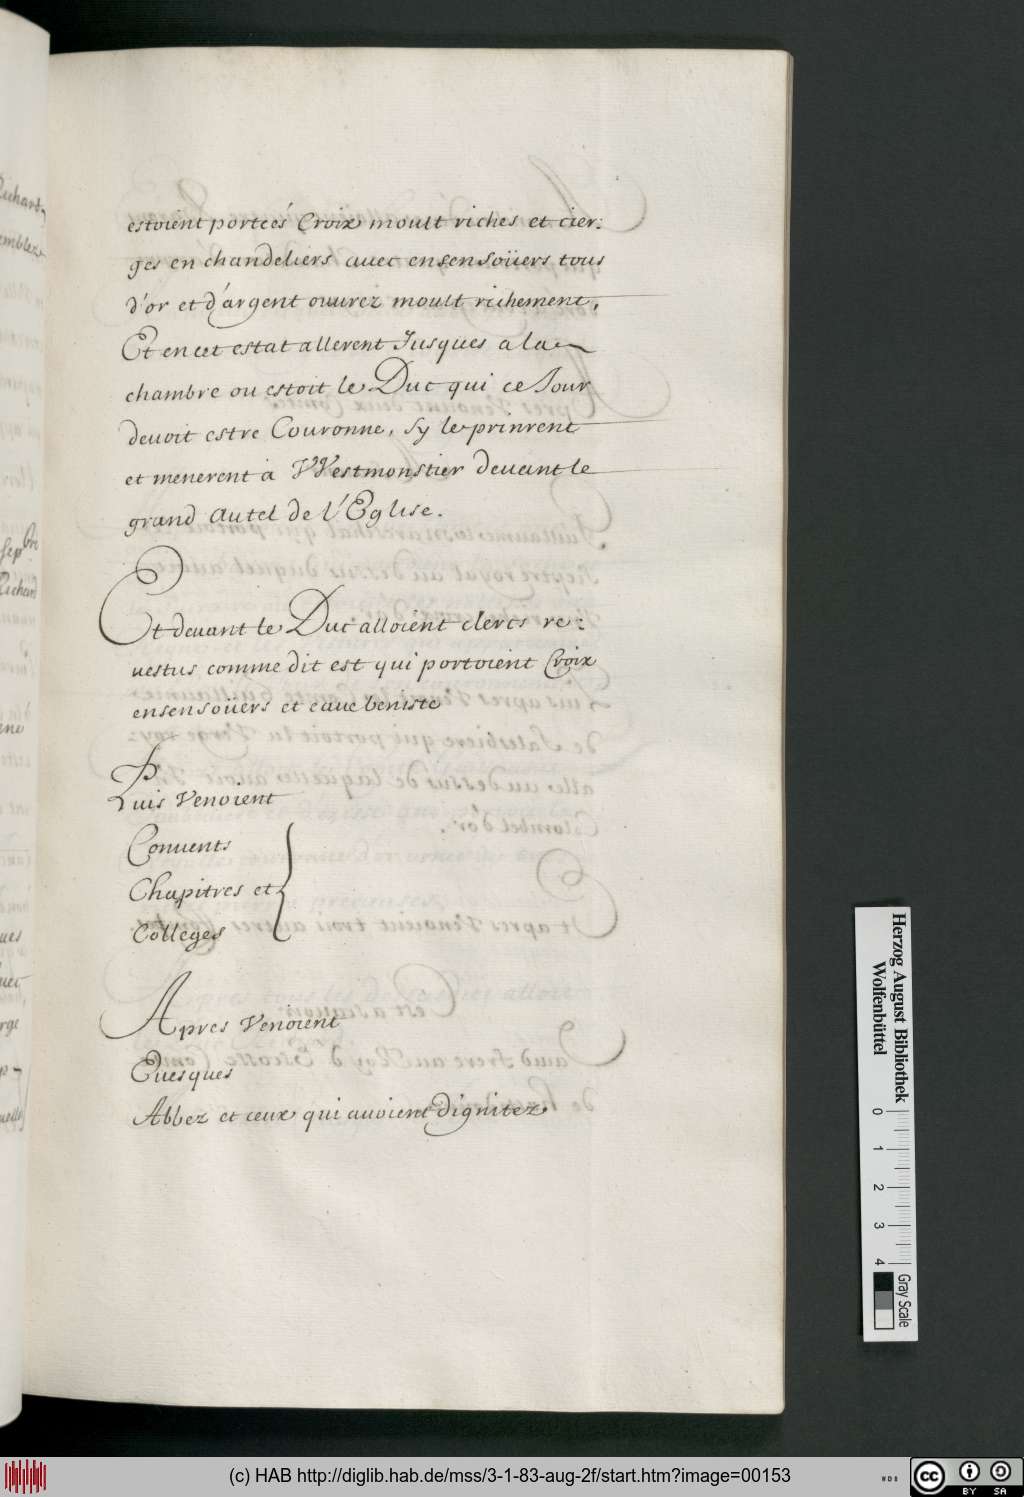 estoient portees Croix moult riches et cier:
ges en chandeliers auec ensensoüers tous
d'or et d'argent ouurez moult richement,
Et en cet estat allerent Jusques a la
chambre ou estoit le Duc qui ce Jour
deuoit estre Couronne, sy le prinrent
et menerent a VVestmonstier deuant le
grand Autel de l'Eglise.
Et deuant le Duc alloient clercs re:
uestus comme dit est qui portoient Croix
ensensoüers et eaue beniste
Puis Venoient
Conuents
Chapitres et
Colleges
Apres Venoient
Euesques
Abbez et ceux qui auoient dignitez
Herzog August Bibliothek
Wolfenbüttel
0 1 2 3 4
Gray Scale
(c) HAB http://diglib.hab.de/mss/3-1-83-aug-2f/start.htm?image=00153
WDB
cc BY SA